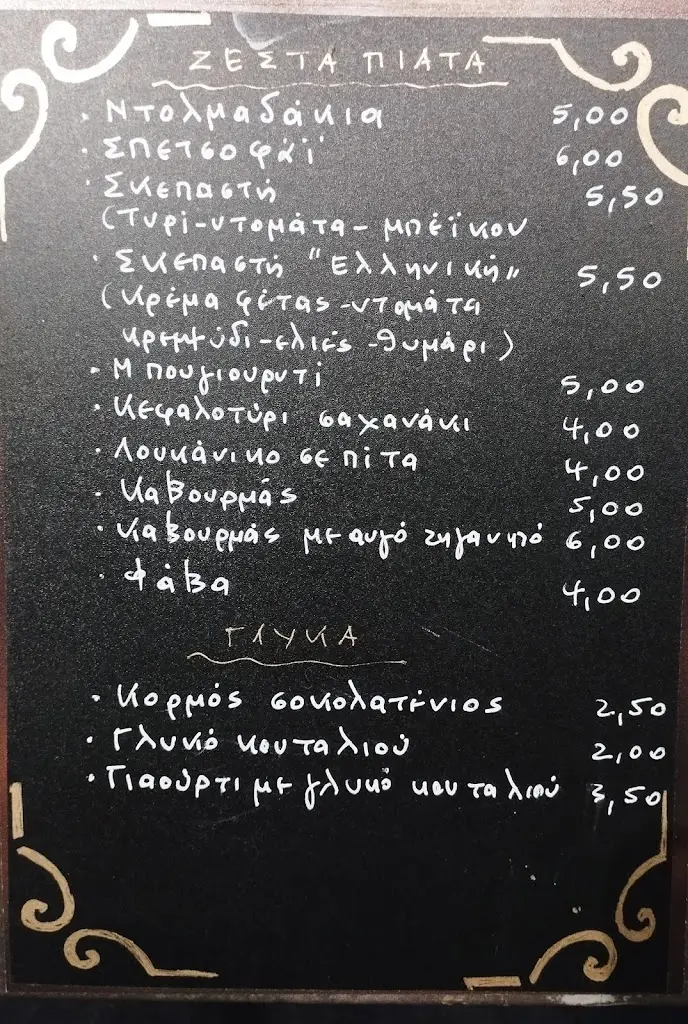 ΖΕΣΤΑ ΠΙΑΤΑ
· Ντολμαδάκια 5,00
· Σπετσοφάϊ 6,00
· Σκεπαστή 5,50
(Τυρί-ντομάτα-μπέϊκον
· Σκεπαστή "Ελληνική" 5,50
(κρέμα φέτας-ντομάτα
κρεμμύδι-ελιές-θυμάρι)
· Μπουγιουρντί 5,00
· Κεφαλοτύρι σαχανάκι 4,00
· Λουκάνικο σε πίτα 4,00
· Καβουρμάς 5,00
· Καβουρμάς με αυγό τηγανητό 6,00
· Φάβα 4,00
ΓΛΥΚΑ
· Κορμός σοκολατένιος 2,50
· Γλυκό κουταλιού 2,00
· Γιαούρτι με γλυκό κουταλιού 3,50